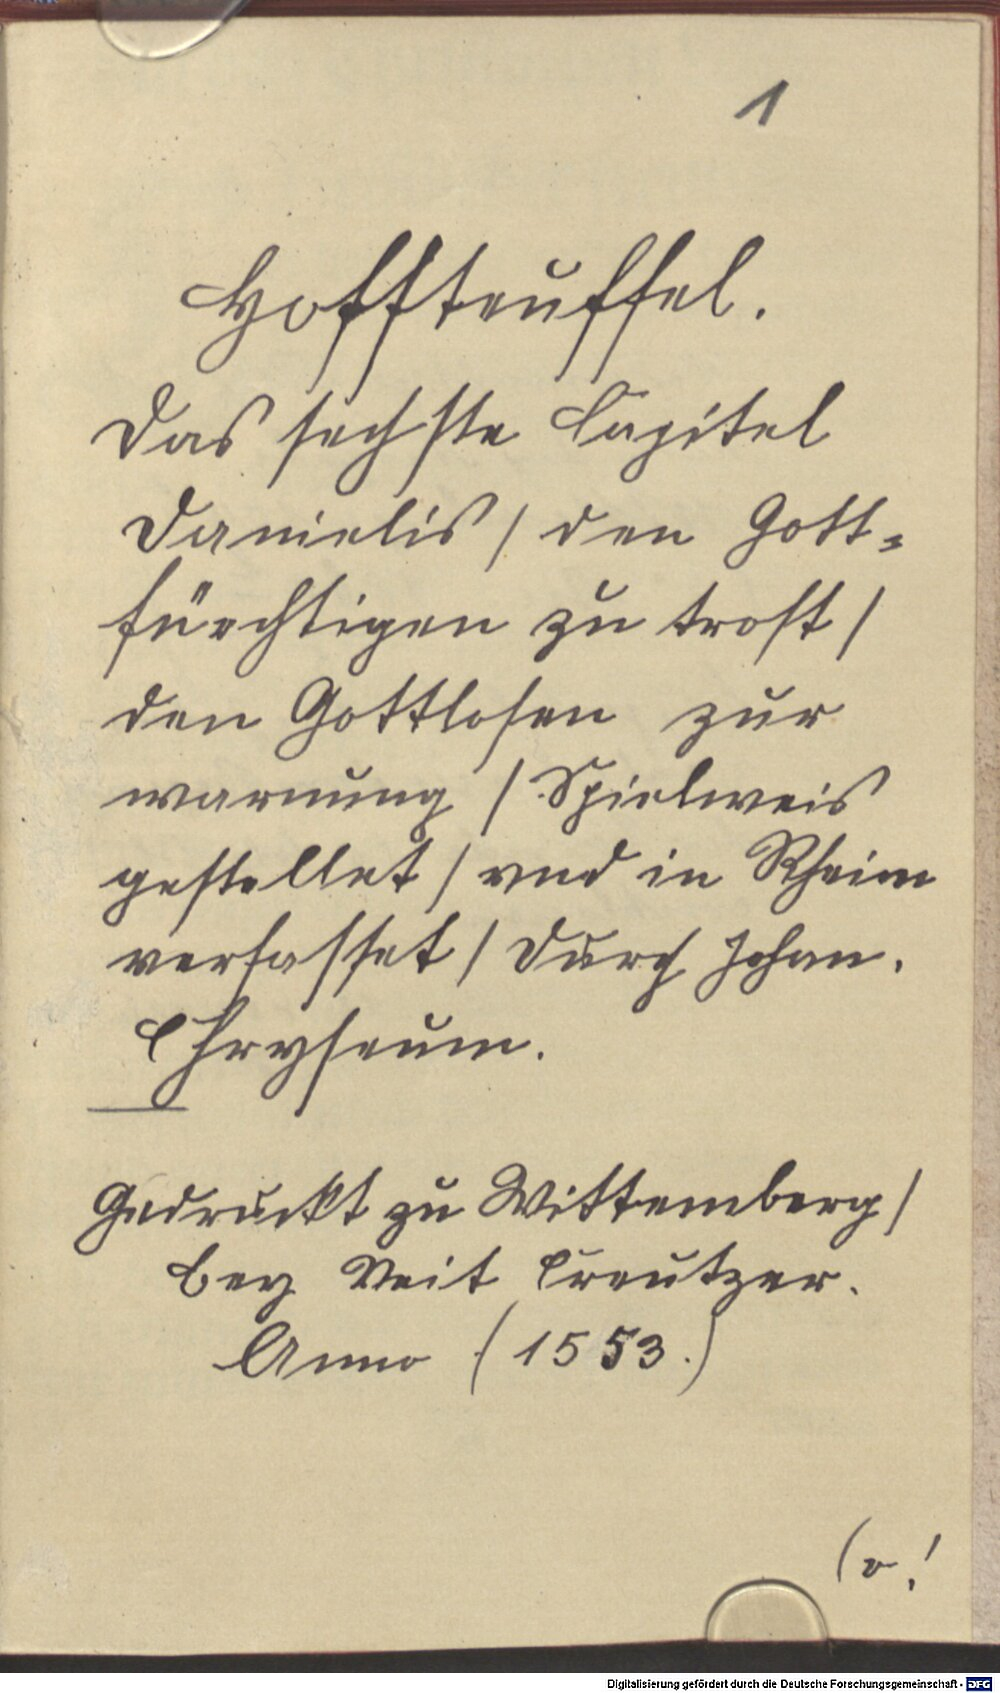 1
Hoffteuffel.
Das sechste Capitel
Danielis / den Gott=
fürchtigen zu trost /
den Gottlosen zur
warnung / Spielweis
gestellet / vnd in Rheim
verfasset / Durch Johan.
Chryseum.
Gedruckt zu Wittemberg /
bey Veit Creutzer.
Anno (1553.)
Digitalisierung gefördert durch die Deutsche Forschungsgemeinschaft - DFG